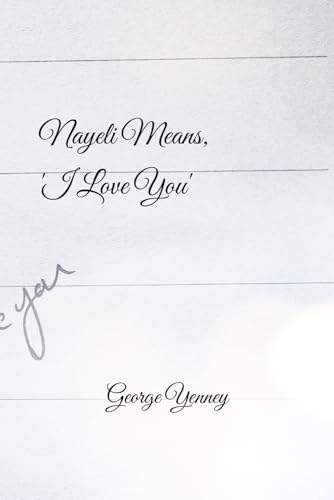 Nayeli Means,
'I Love You'
you
George Yenney